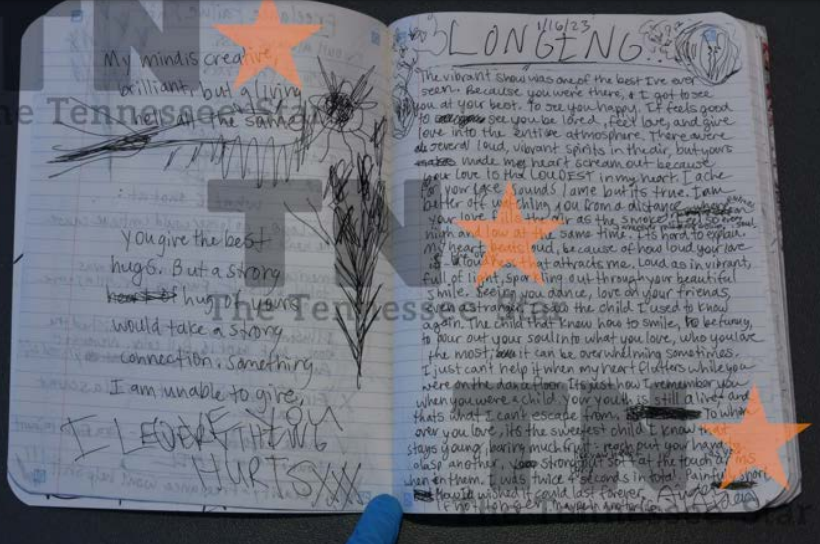 My mind is creative,
brilliant, but a living
hell all the same
you give the best
hugs. But a strong
hug of yours
would take a strong
connection. Something
I am unable to give,
I LOVE YOU
EVERYTHING
HURTS XXX
1/16/23
LONGING
The vibrant show was one of the best I've ever
seen. Because you were there, & I got to see
you at your best. To see you happy. It feels good
to see you be loved, feel love, and give
love into the entire atmosphere. There were
several loud, vibrant spirits in the air, but yours
made my heart scream out because
your love is the LOUDEST in my heart. I ache
for your face sounds lame but its true. I am
better off watching you from a distance
your love fills the air as the smoke I feel so
high and low at the same time. Its hard to explain.
My heart beats loud, because of how loud your love
is that attracts me. Loud as in vibrant,
full of light, sparkling out through your beautiful
smile. Seeing you dance, love on your friends,
strangers the child I used to know
again. The child that knew how to smile, to be funny,
to pour out your soul into what you love, who you love
the most, it can be overwhelming sometimes.
I just can't help it when my heart flutters while you
were on the dance floor. Its just how I remember you
when you were a child. Your youth is still alive and
thats what I can't escape from. To
over you love, its the sweetest child I know that
stays young, baring much fruit - reach out your hand to
clasp another. strong but soft at the touch of
when in them. I was twice 4 seconds in total. Painful short
How I wished it could last forever
If not longer
TN
The Tennessee Star
TN
The Tennessee Star
TN
The Tennessee Star